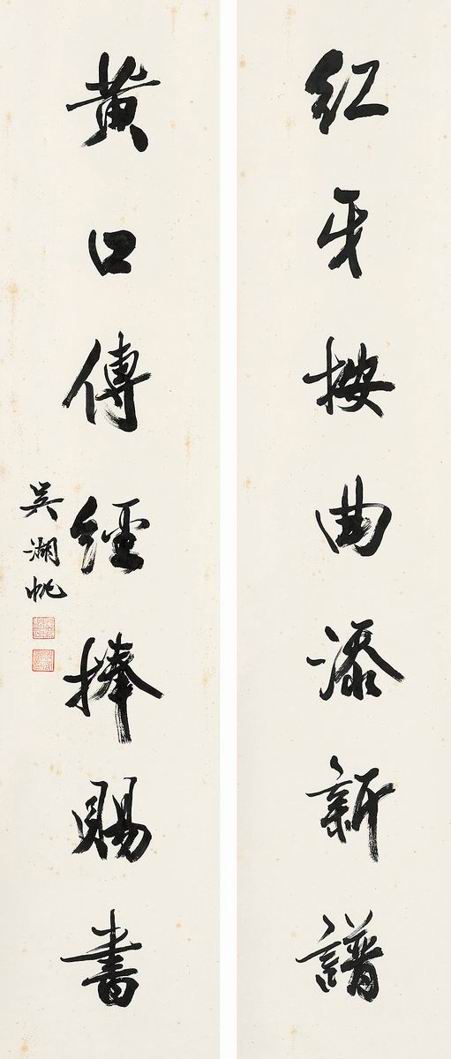 紅牙按曲添新譜
黃口傳經捧賜書
吳湖帆